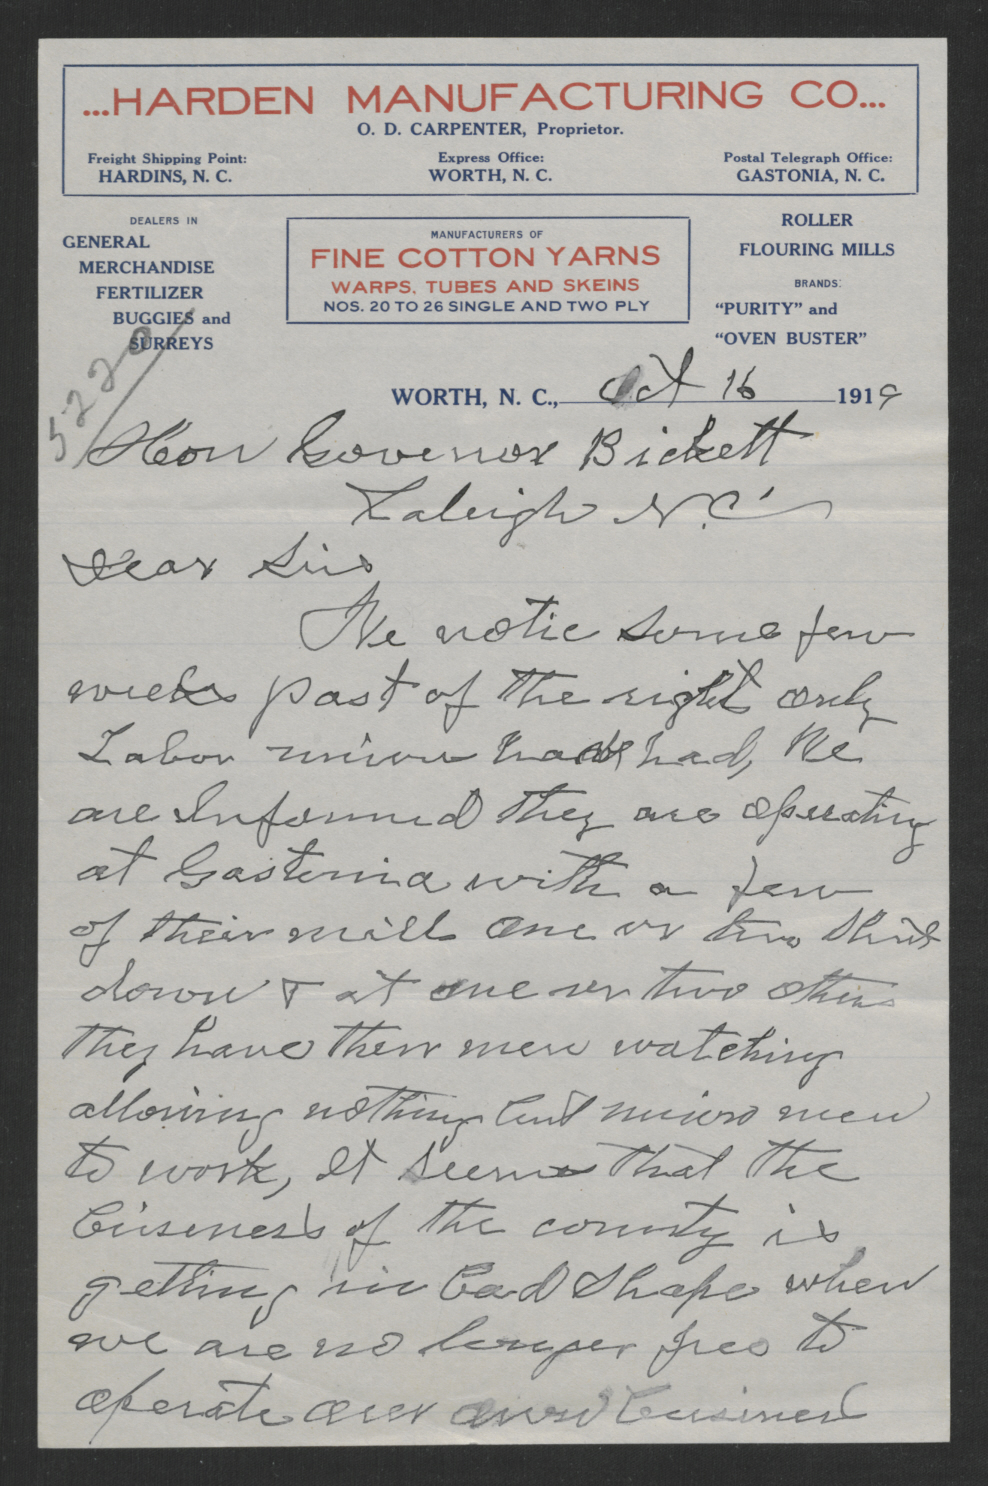 ...HARDEN MANUFACTURING CO...
O. D. CARPENTER, Proprietor.
Freight Shipping Point:
HARDINS, N. C.
Express Office:
WORTH, N. C.
Postal Telegraph Office:
GASTONIA, N. C.
DEALERS IN
GENERAL
MERCHANDISE
FERTILIZER
BUGGIES and
SURREYS
MANUFACTURERS OF
FINE COTTON YARNS
WARPS, TUBES AND SKEINS
NOS. 20 TO 26 SINGLE AND TWO PLY
ROLLER
FLOURING MILLS
BRANDS:
“PURITY” and
“OVEN BUSTER”
5220
WORTH, N. C., Oct 16 1919
Hon Govenor Bickett
Raleigh N.C.
Dear Sir
We notic some few
weeks past of the right only
Labor union had, We
are Informed they are operating
at Gastonia with a few
of their mill one or two Shut
down & at one or two others
they have their men watching
allowing nothing but union men
to work, It seems that the
Business of the county is
getting in bad Shape when
we are no longer free to
operate our own Business